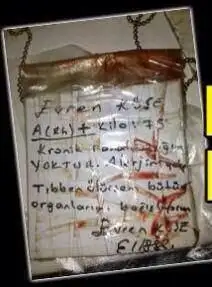 Evren KÖSE
A(Rh)+ Kilo: 75
Kronik
YOKTUR. Alerjim yok
Tıbben ölürsem bütün
organlarımı bağışlıyorum
Evren KÖSE